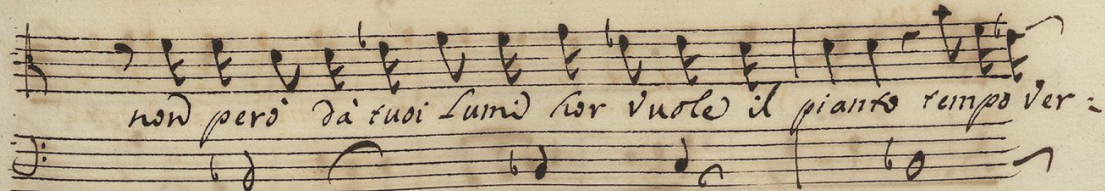 non però dà tuoi lumi hor vuole il pianto tempo ver=